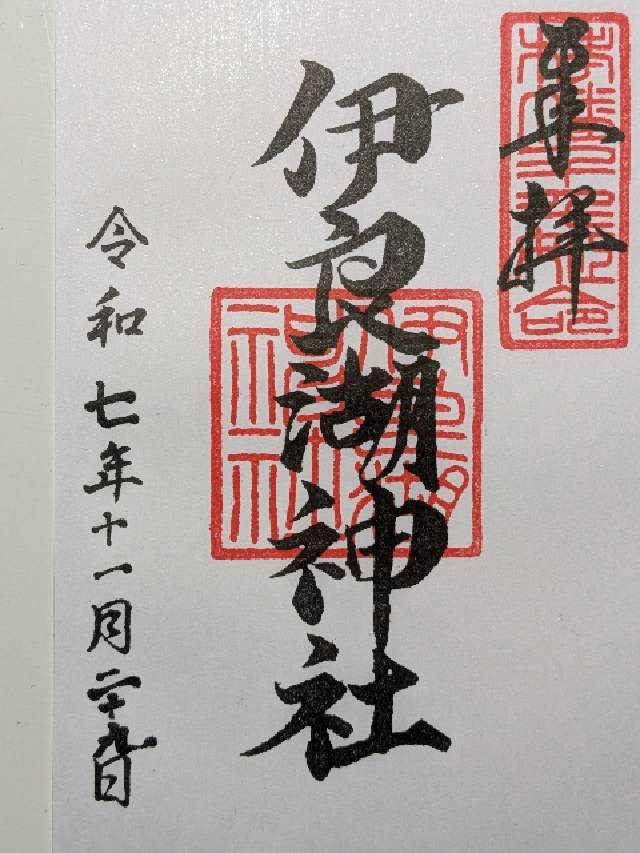 奉拝
伊良湖神社
令和七年十一月二十九日